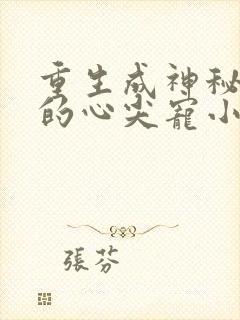 重生成神秘
的心尖寵小
張芬